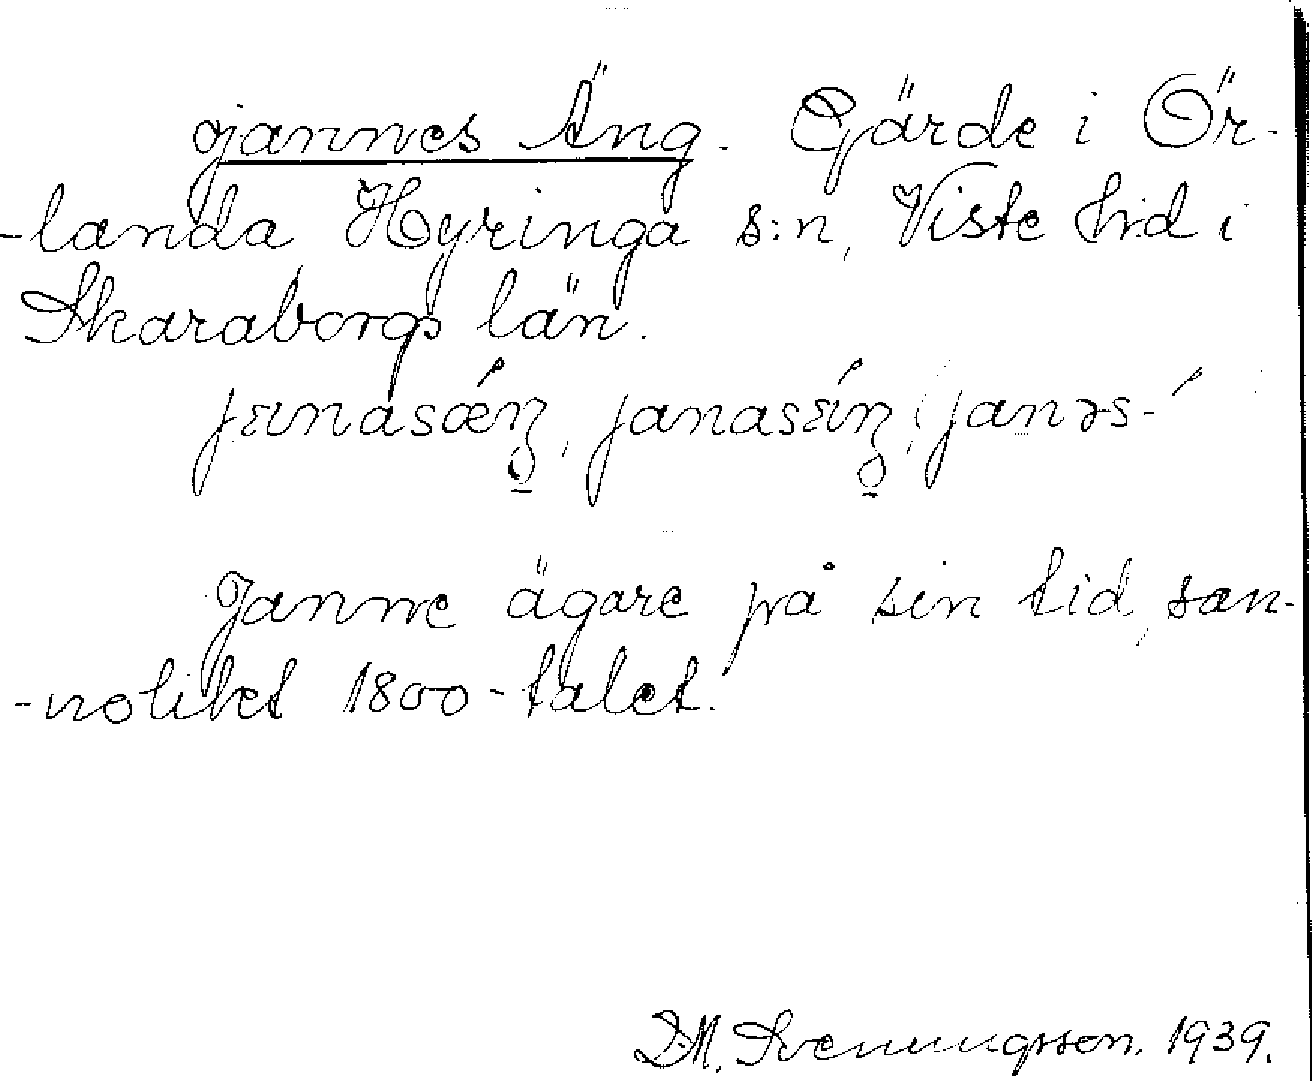 Jannes Äng. Gärde i Ör-
-landa Hyringa s:n, Viste hd i
Skaraborgs län.
Janne ägare på sin tid, san-
-nolikt 1800-talet.
D.M. Svenungsson. 1939.